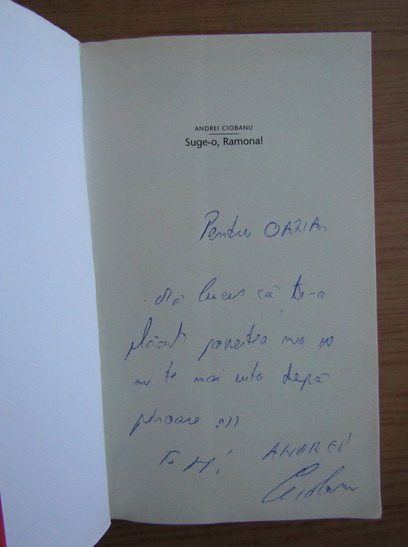 ANDREI CIOBANU
Suge-o, Ramona!
Pentru
Mă bucur că ți-a
plăcut povestea mea
nu te mai uita după
:)))
ANDREI
Ciobanu